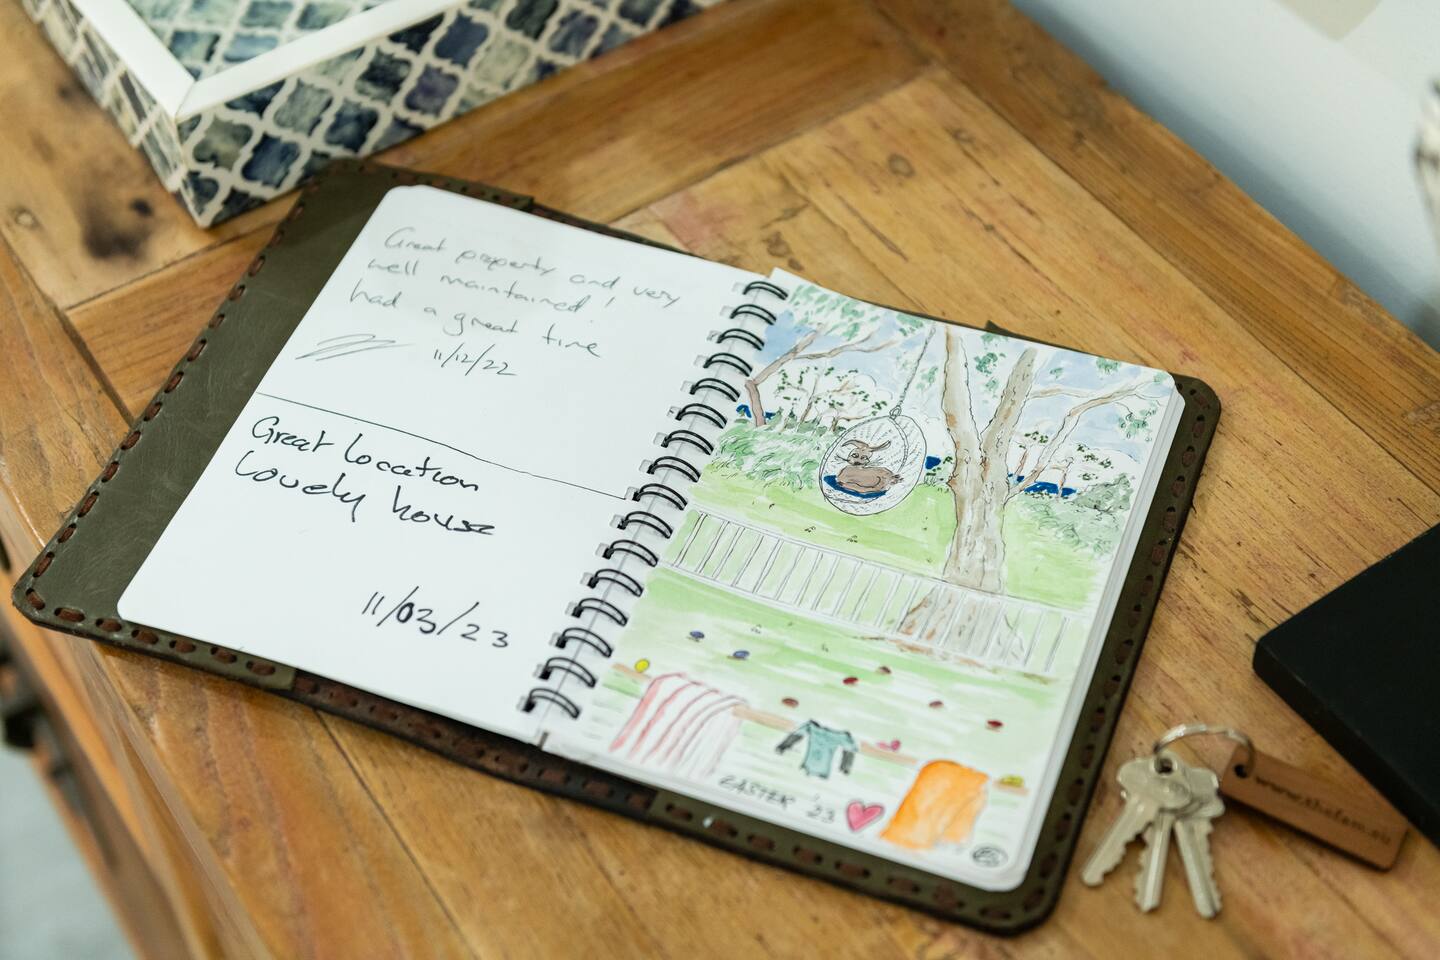 Great property and very
well maintained!
had a great time
11/12/22
Great location
Lovely house
11/03/23
EASTER '23